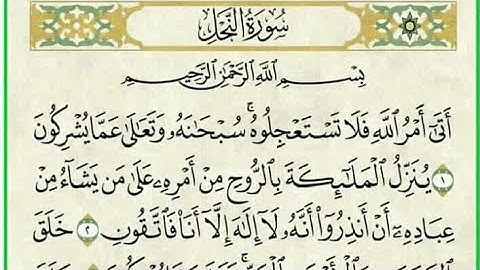 سُورَةُ النَّحْلِ
بِسْمِ اللَّهِ الرَّحْمَٰنِ الرَّحِيمِ
أَتَىٰٓ أَمْرُ اللَّهِ فَلَا تَسْتَعْجِلُوهُ ۚ سُبْحَانَهُۥ وَتَعَالَىٰ عَمَّا يُشْرِكُونَ
١ يُنَزِّلُ الْمَلَٰٓئِكَةَ بِالرُّوحِ مِنْ أَمْرِهِۦ عَلَىٰ مَن يَشَآءُ مِنْ
عِبَادِهِۦٓ أَنْ أَنذِرُوٓا۟ أَنَّهُۥ لَآ إِلَٰهَ إِلَّآ أَنَا۠ فَاتَّقُونِ ٢ خَلَقَ